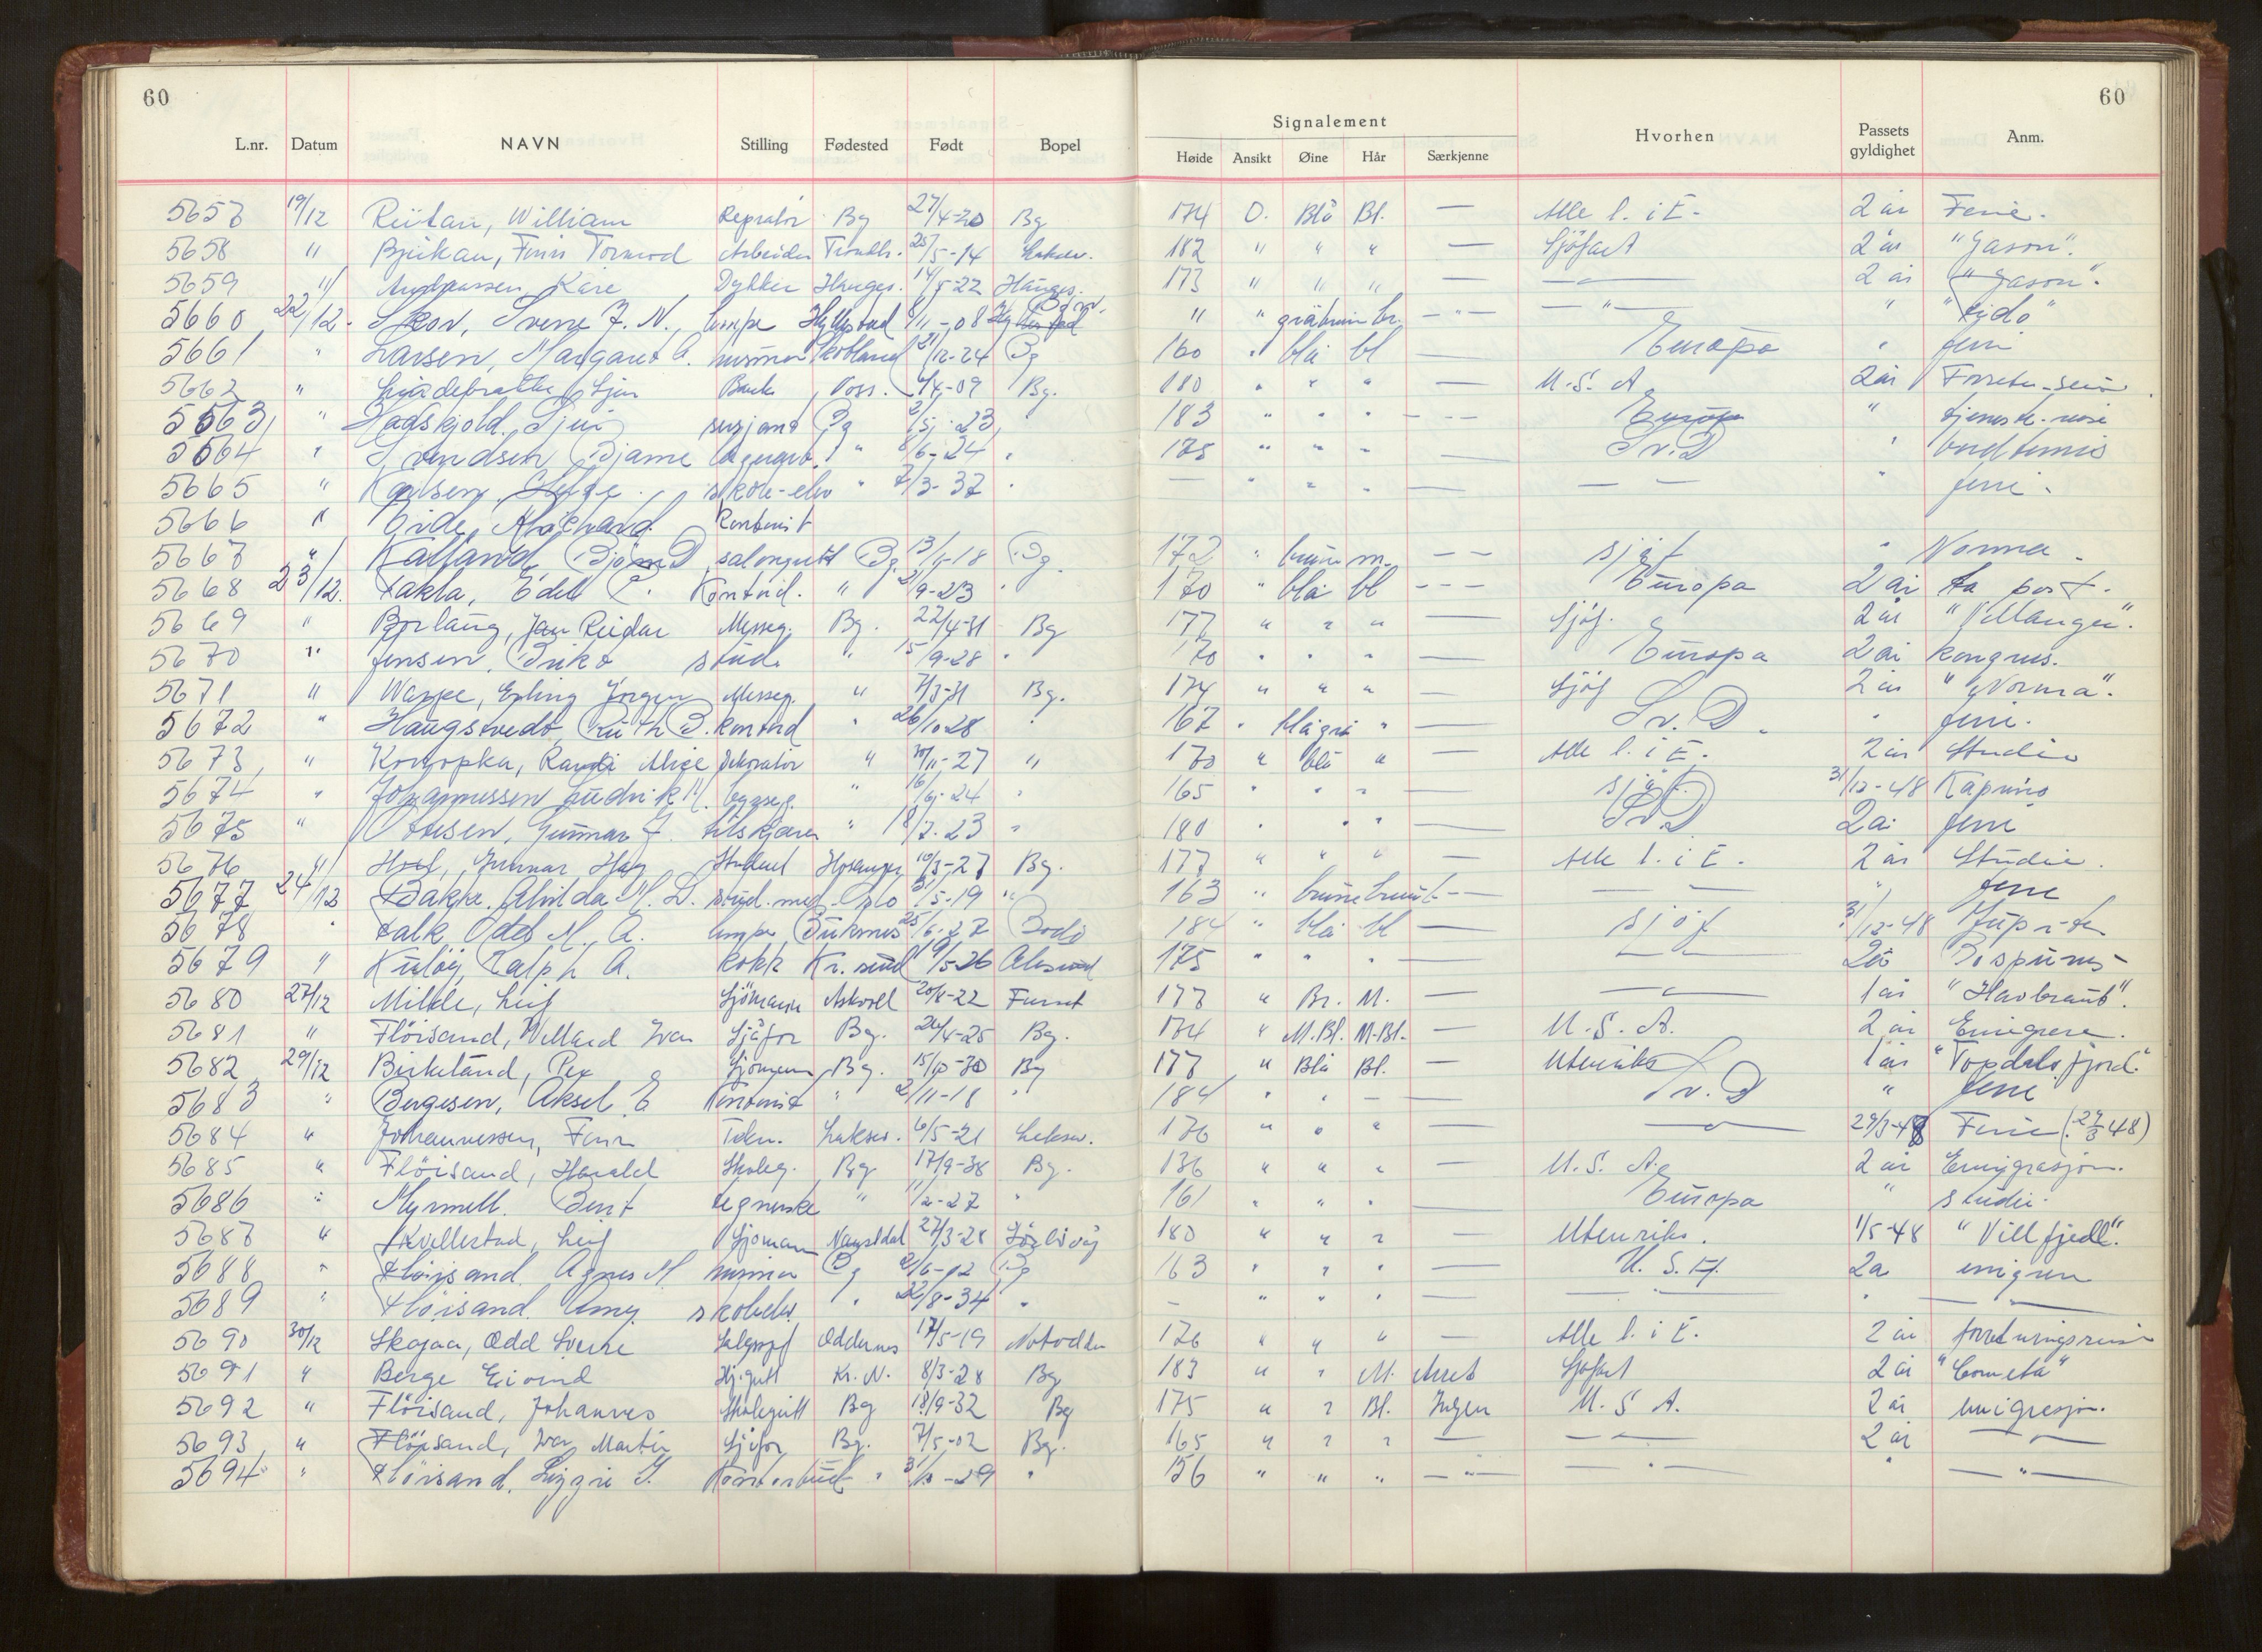 60
60
Signalement
L.nr. Datum NAVN Stilling Fødested Født Bopel Høide Ansikt Øine Hår Særkjenne Hvorhen Passets gyldighet Anm.
5657 19/12 William Bg 27/4-20 Bg 174 O. Blå Bl. — Alle l. i E. 2 år Ferie.
5658 " Finn Tormod Arbeider 25/5-14 182 " " " — Sjöfart 2 år "Jason".
5659 " Kåre Dykker Hauges. 14/5-22 Hauges. 173 " " " — — 2 år "Jason".
5660 22/12 Skov, Sverre J. N. 11-08 " " gråbrun br. — " — " "Lido"
5661 " Larsen, Margaret A. husmor Skotland 12-24 Bg 160 " blå bl — Europa " ferie
5662 " Bank Voss. 4-09 Bg. 180 " " " — U.S.A. 2 år
5663 " sersjant Bg 2/5-23 183 " " " — Europa " tjeneste-reise
5664 " Svendsen Bjarne " 8/6-24 " 175 " " " — Sv.D " bordtennis
5665 " Karlsen Helge skole-elev " 7/3-37 " — " " " — — — " ferie.
5666 " Eide, Richard Kontorist
5667 " Kalland, Björn D. salongutt Bg 13/5-18 Bg. 172 " brun m. — — sjöf " Norma
5668 23/12. Takla, Edel C. Kontord. " 2/9-23 " 170 " blå bl — — — Europa 2 år port.
5669 " Jan Reidar Messeg. Bg. 22/4-31 Bg 177 " " " — Sjöf. 2 år
5670 " Jensen, stud. " 15/9-28 " 170 " " " — Europa 2 år kongres.
5671 " Erling Jörgen Messeg. " 7/3-31 Bg. 174 " " " — Sjöf 2 år "Norma".
5672 " Haugstvedt, Ruth B. kontord " 26/10-28 " 167 " blågrå " — Sv. D " ferie.
5673 " Konopka, Randi Alice Dekoratör " 30/11-27 " 170 " blå " — Alle l. i E. 2 år Studie
5674 " Johannessen Ludvik H. " 16/6-24 " 165 " " " — sjöf. 31/12-48 Kaprino
5675 " Gunnar J. tilskjærer " 18/7-23 " 180 " " " — Sv.D 2 år ferie
5676 " Gunnar Student 10/3-27 Bg. 177 " " " — Alle l. i E. 2 år Studie.
5677 24/12 Bakke, Alvilda M. L. stud. med. Oslo 31/5-19 " 163 " brune brunt — — — " ferie
5678 " Falk Odd M. A. 25/6-27 Bodö 184 " blå bl — sjöf 31/12-48 Jupiter
5679 " Ralph A. kokk Kr. sund 19/5-26 Ålesund 175 " " " — — 2 år Bosporus
5680 27/12 Milde, Leif Sjömann Askvoll 20/8-22 177 " Br. M. — — 1 år "Havbraut".
5681 " Flöisand, Willard Ivar Sjåför Bg. 26/4-25 Bg. 174 " M.Bl. M.Bl. — U.S.A. 2 år Emigrere.
5682 29/12 Birkeland, Per Sjömann Bg. 15/10-30 Bg 177 " Blå Bl. — Utenriks 1 år "Topdalsfjord".
5683 " Bergesen, Aksel E Kontorist " 2/11-18 " 184 " " — — Sv. D " ferie
5684 " Johannessen, Finn Tekn. Laksev. 6/5-21 Laksev. 176 " " " — — 29/3-48 Ferie (27/3 48)
5685 " Flöisand, Harald Skoleg. Bg 17/9-38 Bg. 136 " " " — U.S.A. 2 år Emigrasjon.
5686 " Myrmell. Berit tegnerske " 1/2-27 " 161 " " " — Europa " studie.
5687 " Kvellestad, Leif Sjömann Naustdal 27/3-28 180 " " " — Utenriks. 1/5-48 "Villfjell".
5688 " Flöisand. Agnes M husmor Bg 2/6-02 Bg 163 " " " — U.S.A. 2 år emigrere
5689 " Flöisand. Amy. skoleelev. " 22/8-34 " — " " " — — " —
5690 30/12 Skajaa, Odd Sverre Oddernes 17/5-19 Notodden 176 " " " — Alle l. i E. 2 år forretningsreise
5691 " Berge Eivind Kr. N. 8/3-28 Bg 183 " " M. Arret Sjöfart 2 år "Cometa"
5692 " Flöisand, Johannes Skolegutt Bg 18/9-32 Bg 175 " " Bl. Ingen U.S.A. 2 år emigrasjon.
5693 " Flöisand, Ivar Martin Sjåför Bg. 7/5-02 Bg. 165 " " " — — 2 år —
5694 " Flöisand, Lizzie S. Kontorbud " 3/10-29 " 156 " " " — " — — " — " — " —